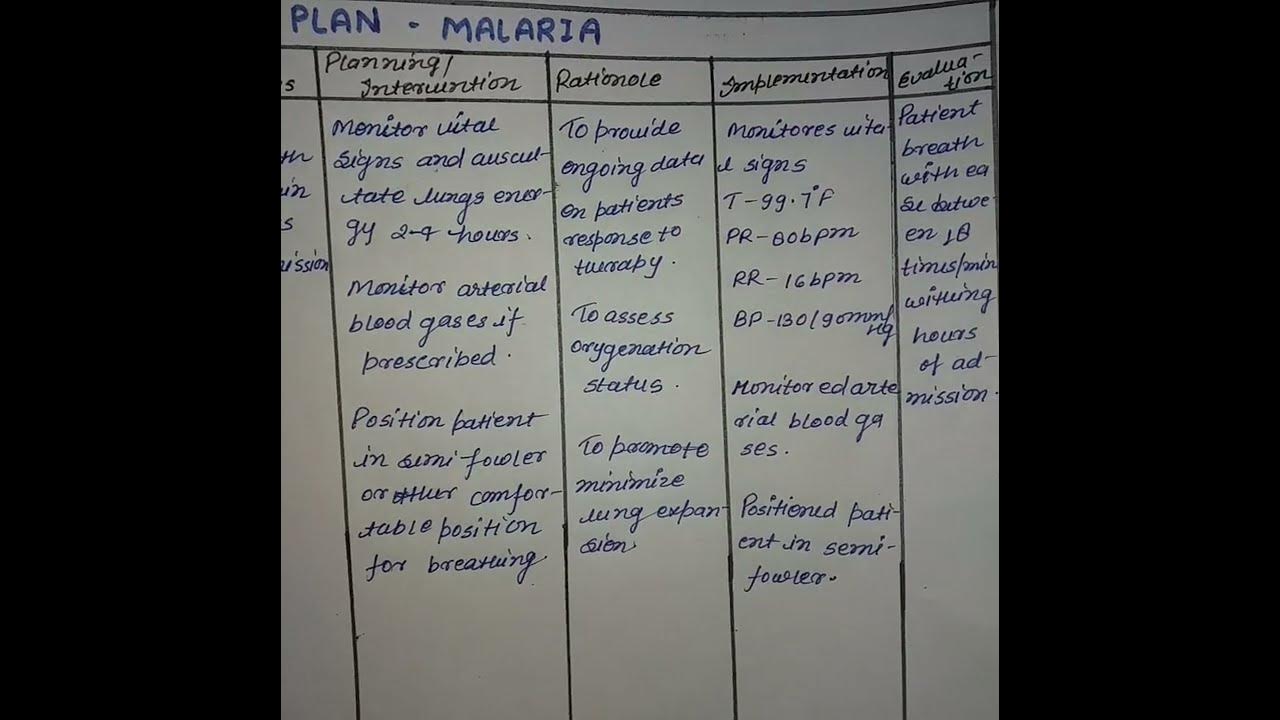 PLAN - MALARIA
s
Planning/
Intervention
Rationole
Implementation
Evalua-
tion
th
in
s
ission
Monitor vital
signs and auscul-
tate lungs ener-
gy 2-4 hours.
Monitor arterial
blood gases if
prescribed.
Position patient
in semi-fowler
or other comfor-
table position
for breathing.
To provide
ongoing data
on patients
response to
therapy.
To assess
oxygenation
status.
To promote
minimize
lung expan-
sion.
Monitores vita-
l signs
T-99.7°F
PR-80bpm
RR-16bpm
BP-130/90mm/
Hg
Monitor ed arte
rial blood ga
ses.
Positioned pati-
ent in semi-
fowler.
Patient
breath
with ea
se betwe-
en 18
times/min
withing
hours
of ad-
mission.